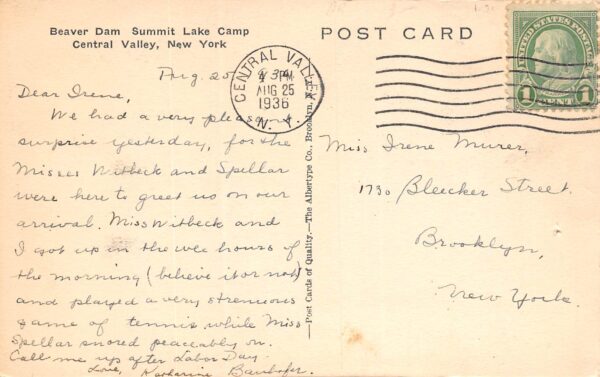 Beaver Dam Summit Lake Camp
Central Valley, New York
POST CARD
UNITED STATES POSTAGE
1 CENT 1
CENTRAL VALLEY
4 PM
AUG 25
1936
N. Y.
Aug. 25
Dear Irene,
We had a very pleasant
surprise yesterday, for the
Misses Witbeck and Spellar
were here to greet us on our
arrival. Miss Witbeck and
I got up in the wee hours of
the morning (believe it or not)
and played a very strenuous
game of tennis while Miss
Spellar snored peaceably on.
Call me up after Labor Day.
Love, Katharine
Post Cards of Quality.—The Albertype Co., Brooklyn, N. Y.
Miss Irene Murer,
1730 Bleecker Street.
Brooklyn,
New York.